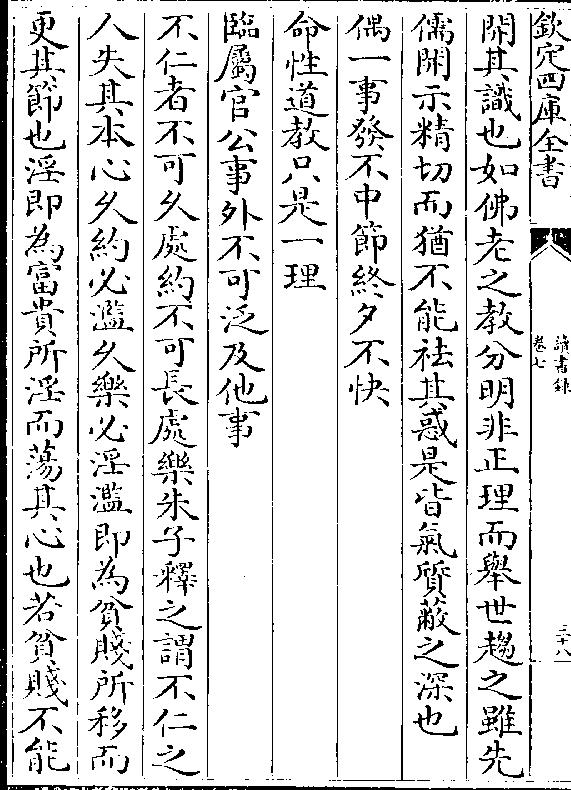 欽定四庫全書
讀書錄
卷七
三十八
開其識也如佛老之教分明非正理而舉世趨之雖先
儒開示精切而猶不能祛其惑是皆氣質蔽之深也
偶一事發不中節終夕不快
命性道教只是一理
臨屬官公事外不可泛及他事
不仁者不可久處約不可長處樂朱子釋之謂不仁之
人失其本心久約必濫久樂必淫濫即為貧賤所移而
更其節也淫即為富貴所淫而蕩其心也若貧賤不能